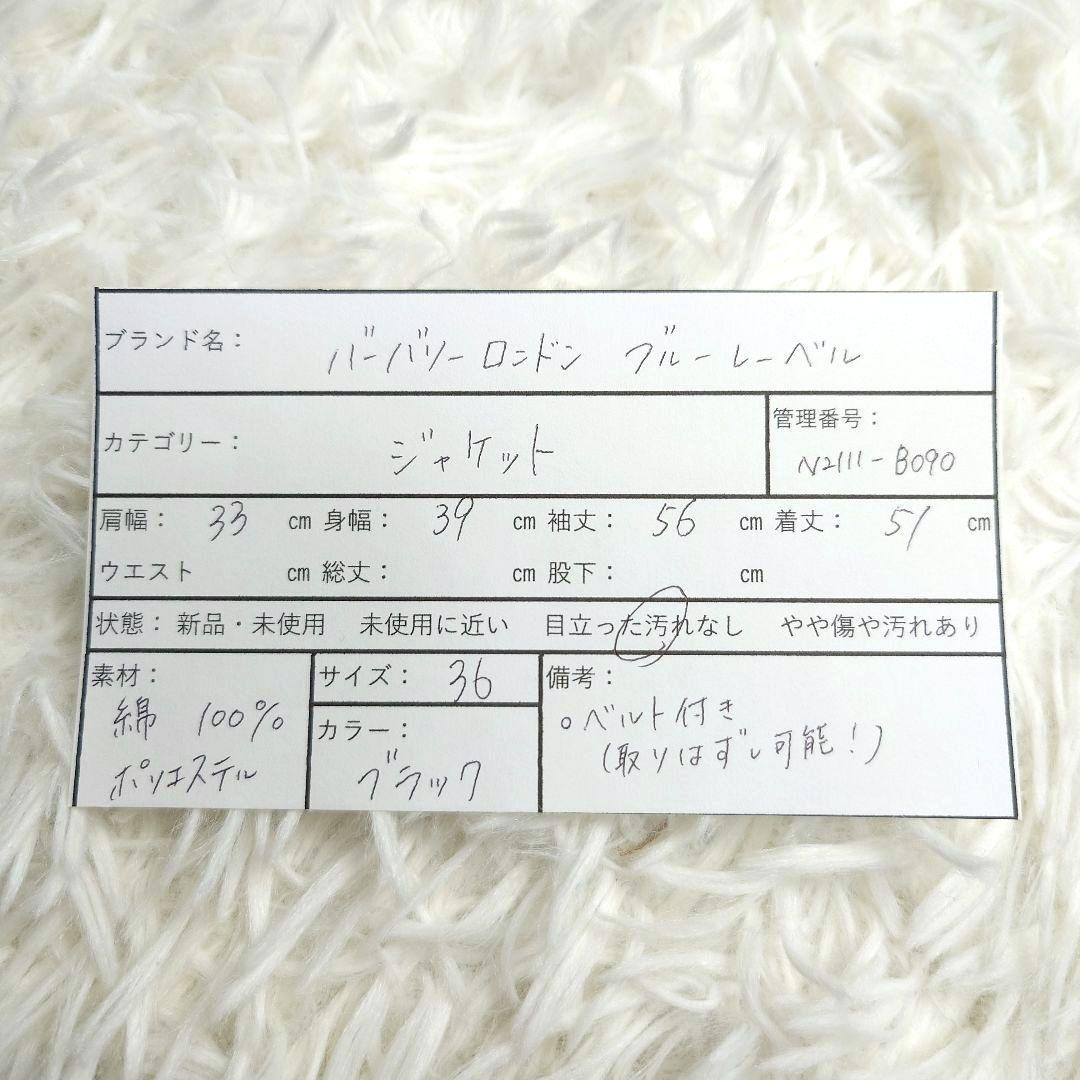 ブランド名： バーバリーロンドン ブルーレーベル
カテゴリー： ジャケット
管理番号：
N2111-B090
肩幅： 33 ㎝ 身幅： 39 ㎝ 袖丈： 56 ㎝ 着丈： 51 ㎝
ウエスト ㎝ 総丈： ㎝ 股下： ㎝
状態： 新品・未使用 未使用に近い 目立った汚れなし やや傷や汚れあり
素材：
綿 100%
ポリエステル
サイズ： 36
カラー：
ブラック
備考：
○ベルト付き
(取りはずし可能！)